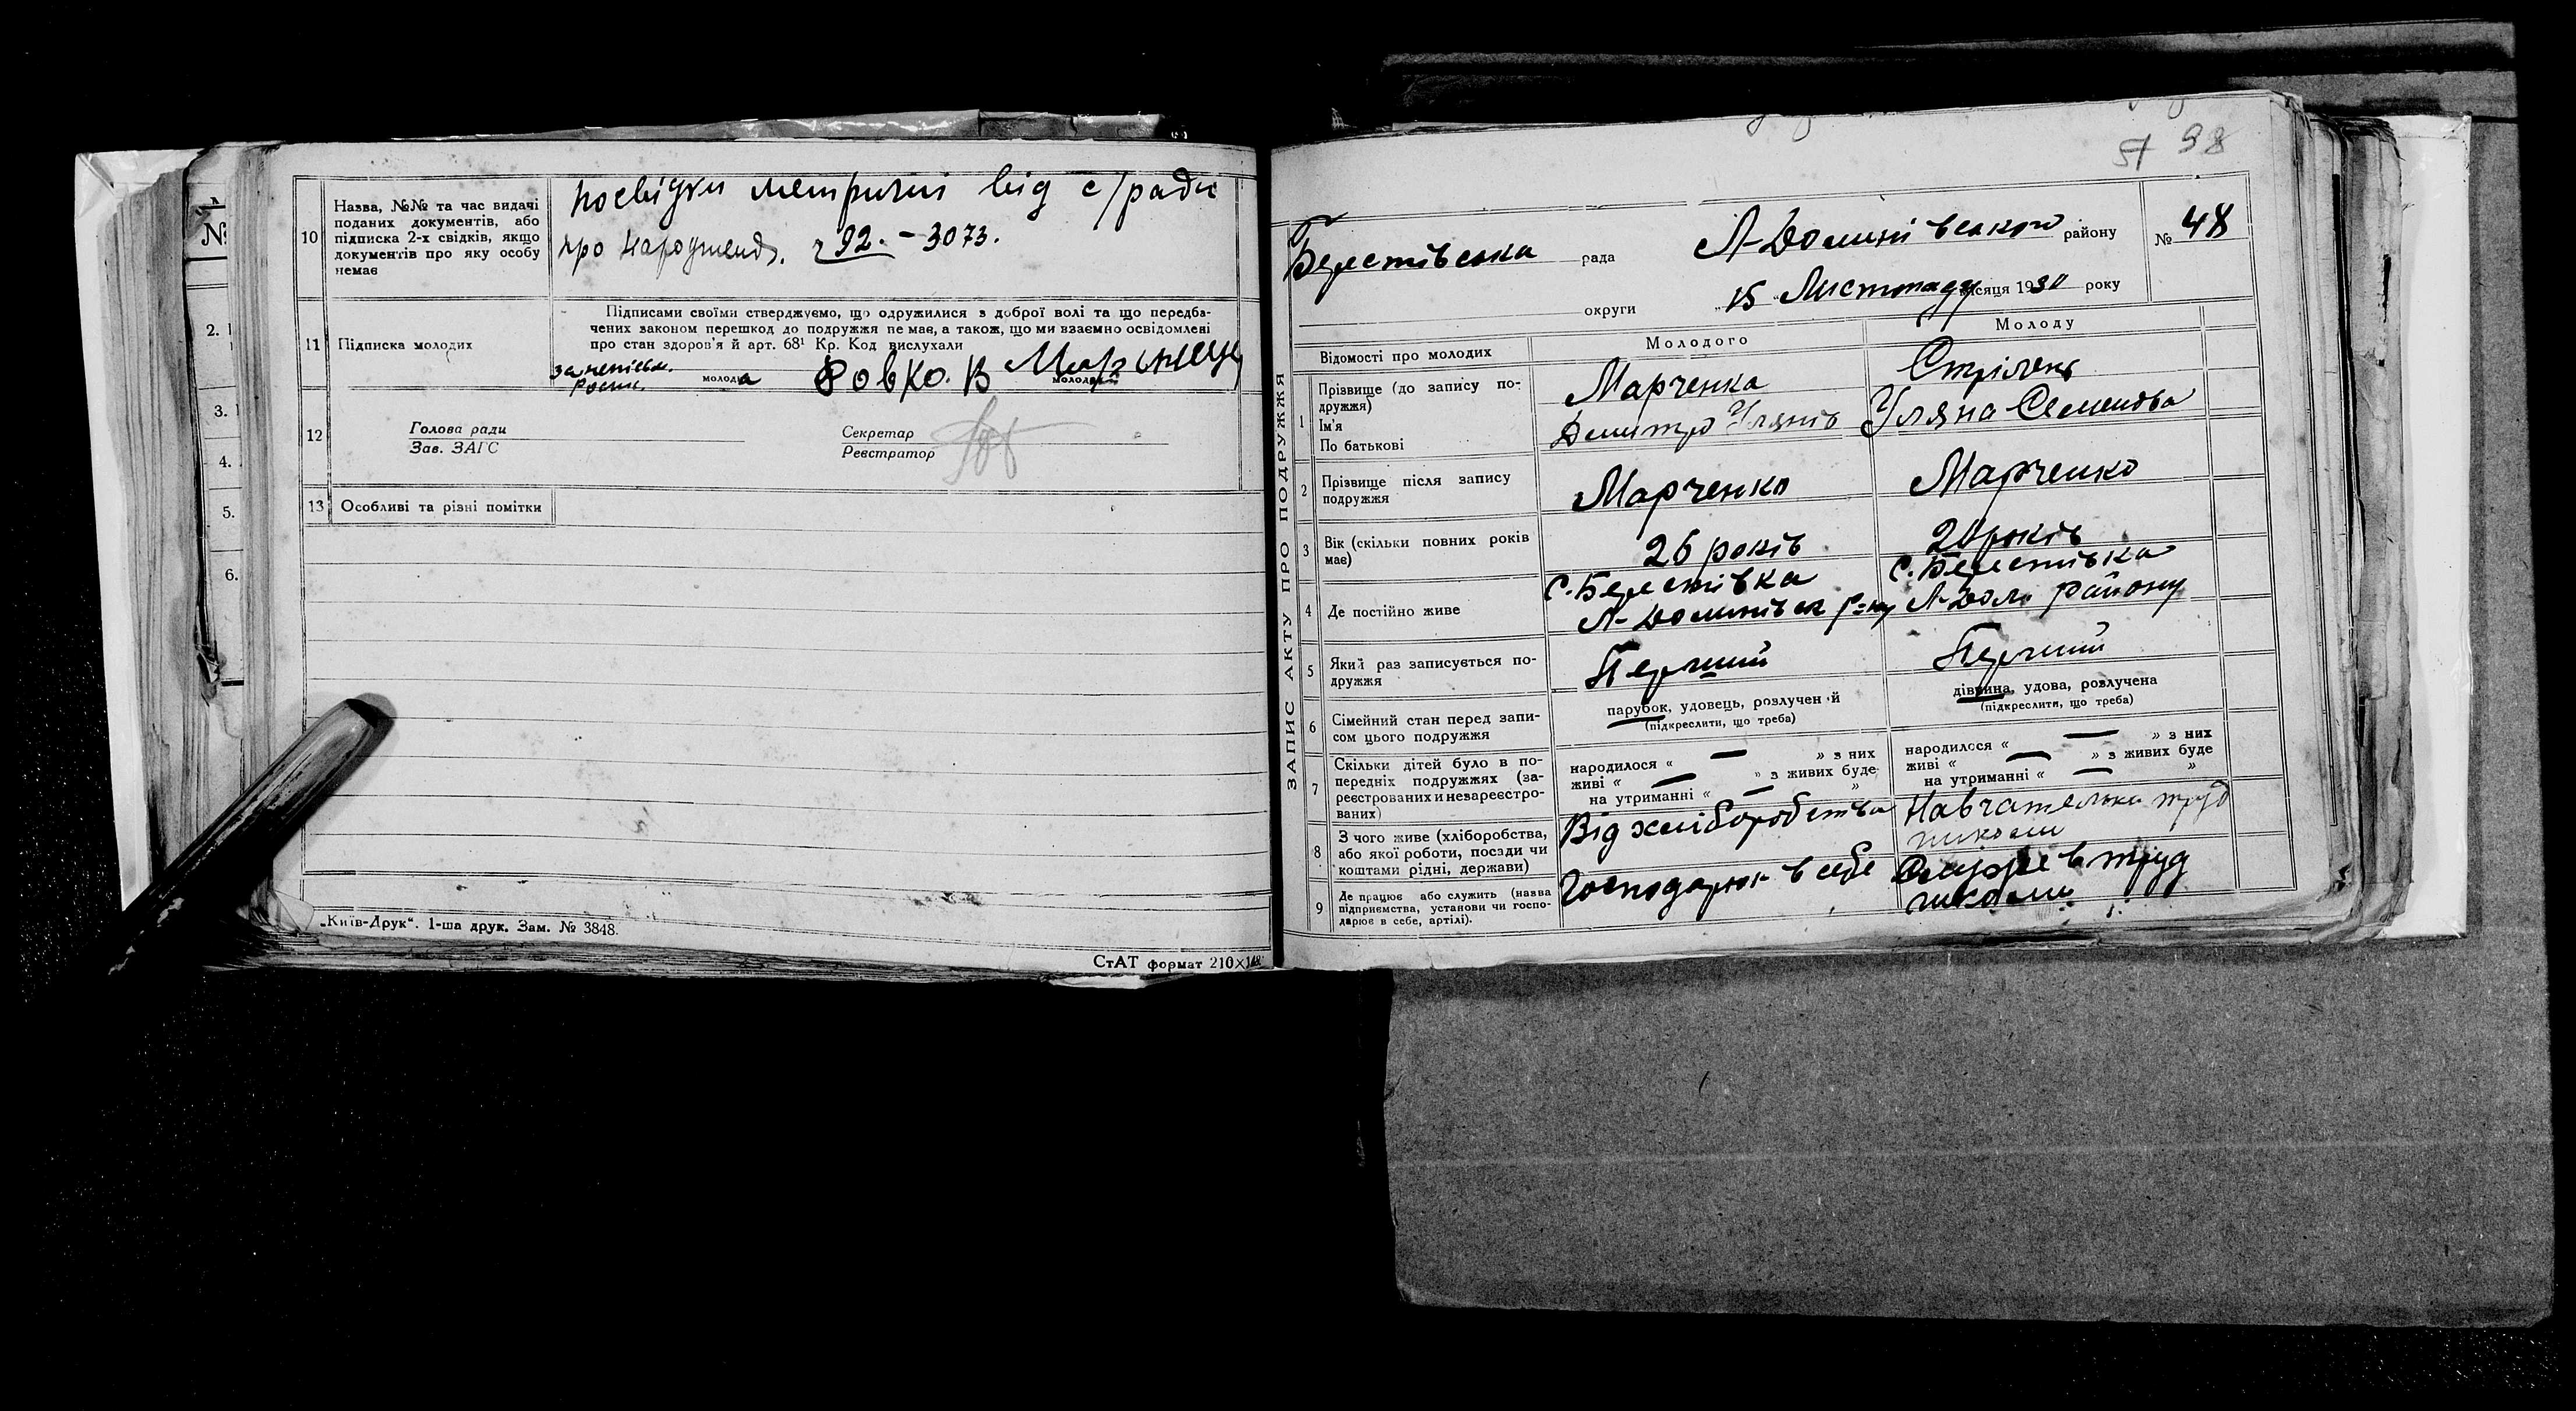 №
2.
3.
4.
5.
6.
10
Назва, №№ та час видачі
поданих документів, або
підписка 2-х свідків, якщо
документів про яку особу
немає
посвідки метричні від с/ради
про народженя. 92. – 3073.
11
Підписка молодих
Підписами своїми стверджуємо, що одружилися з доброї волі та що передба-
чених законом перешкод до подружжя не має, а також, що ми взаємно освідомлені
про стан здоров'я й арт. 68¹ Кр. Код вислухали
молода Фовко. В
12
Голова ради
Зав. ЗАГС
Секретар
Реєстратор
13
Особливі та різні помітки
„Київ-Друк“. 1-ша друк. Зам. № 3848.
СтАТ формат 210×148
ЗАПИС АКТУ ПРО ПОДРУЖЖЯ
57 98
Берестівська рада
Л-Долинівського району
№ 48
округи
„15 Листопаду місяця 1930 року
Відомості про молодих
Молодого
Молоду
1
Прізвище (до запису по-
дружжя)
Ім'я
По батькові
Марченка
Дмитро Улянів
Стрілець
Уляна Семенова
2
Прізвище після запису
подружжя
Марченко
Марченко
3
Вік (скільки повних років
має)
26 років
20 років
4
Де постійно живе
с. Берестівка
Л-Долинівськ р-ну
с. Берестівка
Л-Дол. району
5
Який раз записується по-
дружжя
Перший
Перший
6
Сімейний стан перед запи-
сом цього подружжя
парубок, удовець, розлучений
(підкреслити, що треба)
дівчина, удова, розлучена
(підкреслити, що треба)
7
Скільки дітей було в по-
передніх подружжях (за-
реєстрованих и незареєстро-
ваних)
народилося « — » з них
живі « — » з живих буде
на утриманні « — »
народилося « — » з них
живі « — » з живих буде
на утриманні « — »
8
З чого живе (хліборобства,
або якої роботи, посади чи
коштами рідні, держави)
Від хліборобства
Навчателька труд
школи
9
Де працює або служить (назва
підприємства, установи чи госпо-
дарює в себе, артілі).
Господарює в себе
Служе в труд
школі